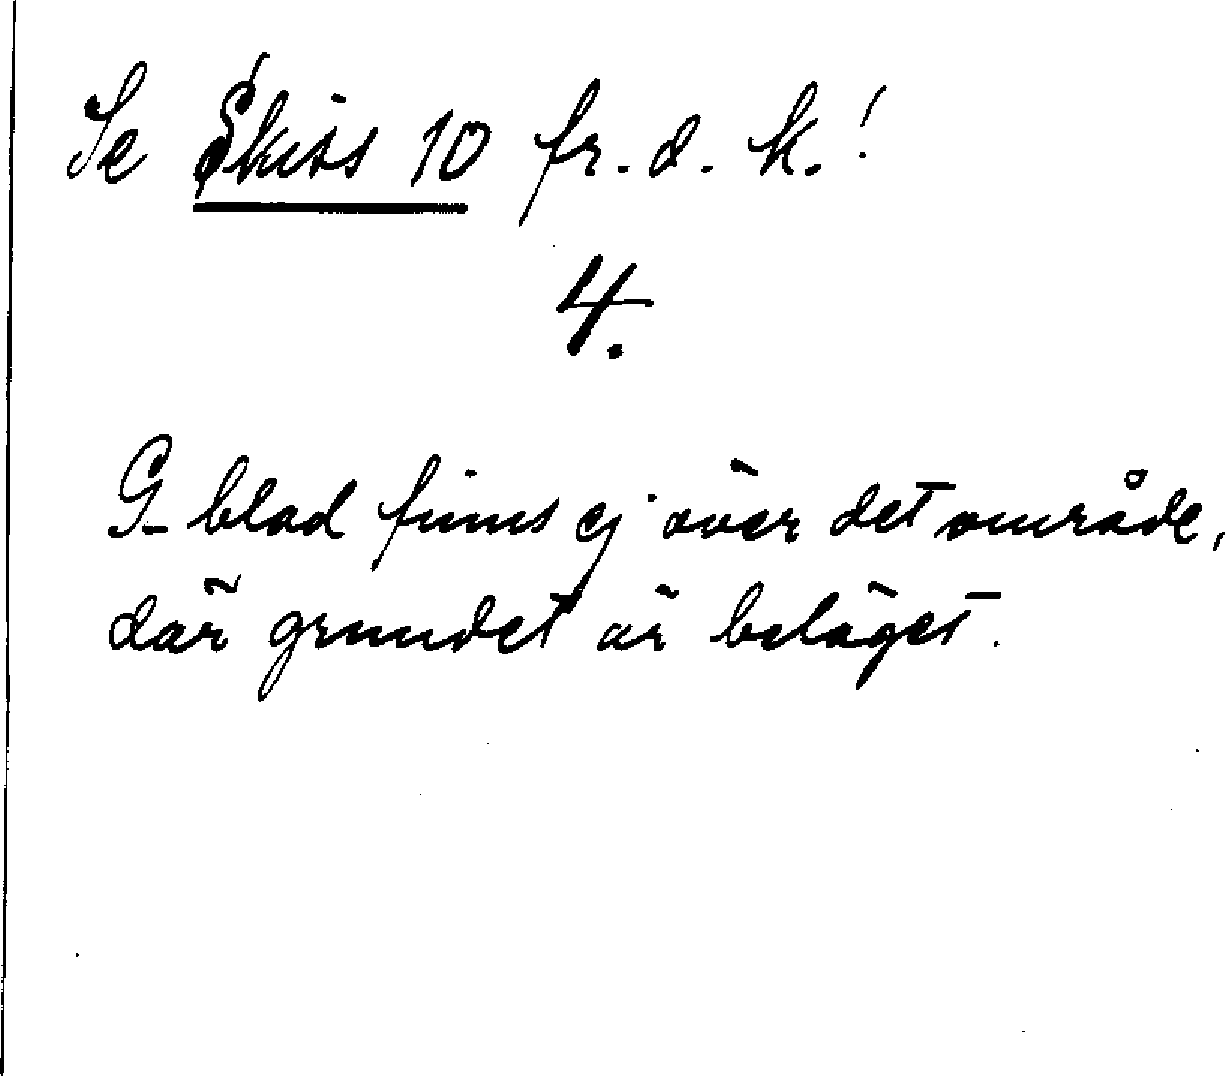 Se Skiss 10 fr. d. k.!
4.
G-blad finns ej över det område,
där grundet är beläget.